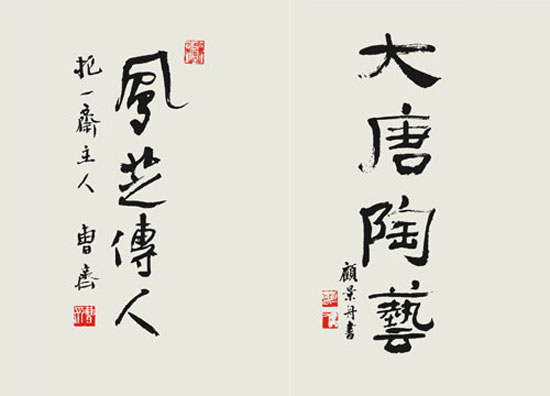 大唐陶藝
顧景舟書
鳳芝傳人
抱一齋主人 曹